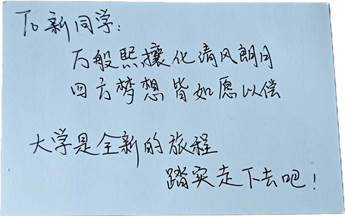 To 新同学:
万般熙攘化清风朗月
四方梦想皆如愿以偿
大学是全新的旅程
踏实走下去吧!